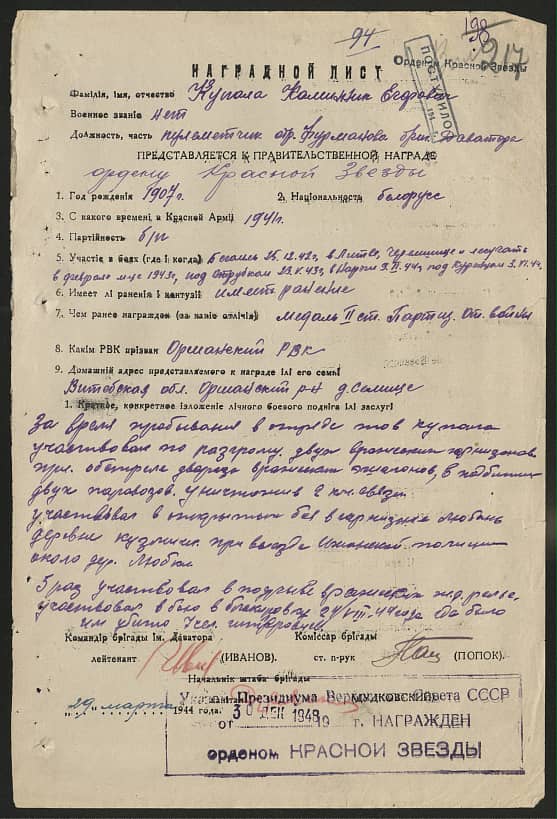 94
198
217
Орденом Красной Звезды
ПОСТУПИЛО
НАГРАДНОЙ ЛИСТ
Фамілія, імя, отчество Купала Егорович
Военное званіе нет
Должность, часть пулеметчик отр. Фурманова бриг. Даватора
ПРЕДСТАВЛЯЕТСЯ К ПРАВИТЕЛЬСТВЕННОЙ НАГРАДЕ
ордену Красной Звезды
1. Год рожденія 1907г. 2. Національность белорусс
3. С какого времені в Красной Арміі 1941г.
4. Партійность б/п
5. Участіе в боях (где і когда) 25.12.42г. в
в феврале м-це 1943г., под 23.V.43г. в 44г. под 3.VI.44
6. Імеет лі раненія і контузіі имеет ранение
7. Чем ранее награжден (за какіе отлічія) Медаль II ст. Партиз. От. войны
8. Какім РВК прізван Оршанский РВК
9. Домашній адрес представляемого к награде ілі его семьі
Витебская обл. Оршанский р-н д. Селище
1. Краткое, конкретное ізложеніе лічного боевого подвіга ілі заслугі
За время пребывания в отряде тов Купала
участвовал по разгрому двух вражеских гарнизонов
при обстреле вражеских эшалонов,
двух паровозов. уничтожив 2 км. связи
участвовал в открытом бою в гарнизоне Любань
деревне при выезде полиции
около дер. Любань
5 раз участвовал в подрыве вражеских ж.д. рельс,
участвовал в бою в 44 года где было
убито
Командір брігады ім. Даватора
Коміссар брігады
лейтенант (ИВАНОВ).
ст. п-рук (ПОПОК).
Начальнік штаба брігады
Указ Президиума Верховного Совета СССР
"29" марта 1944 года.
от 30 ДЕК 1948 19 г. НАГРАЖДЕН
орденом КРАСНОЙ ЗВЕЗДЫ